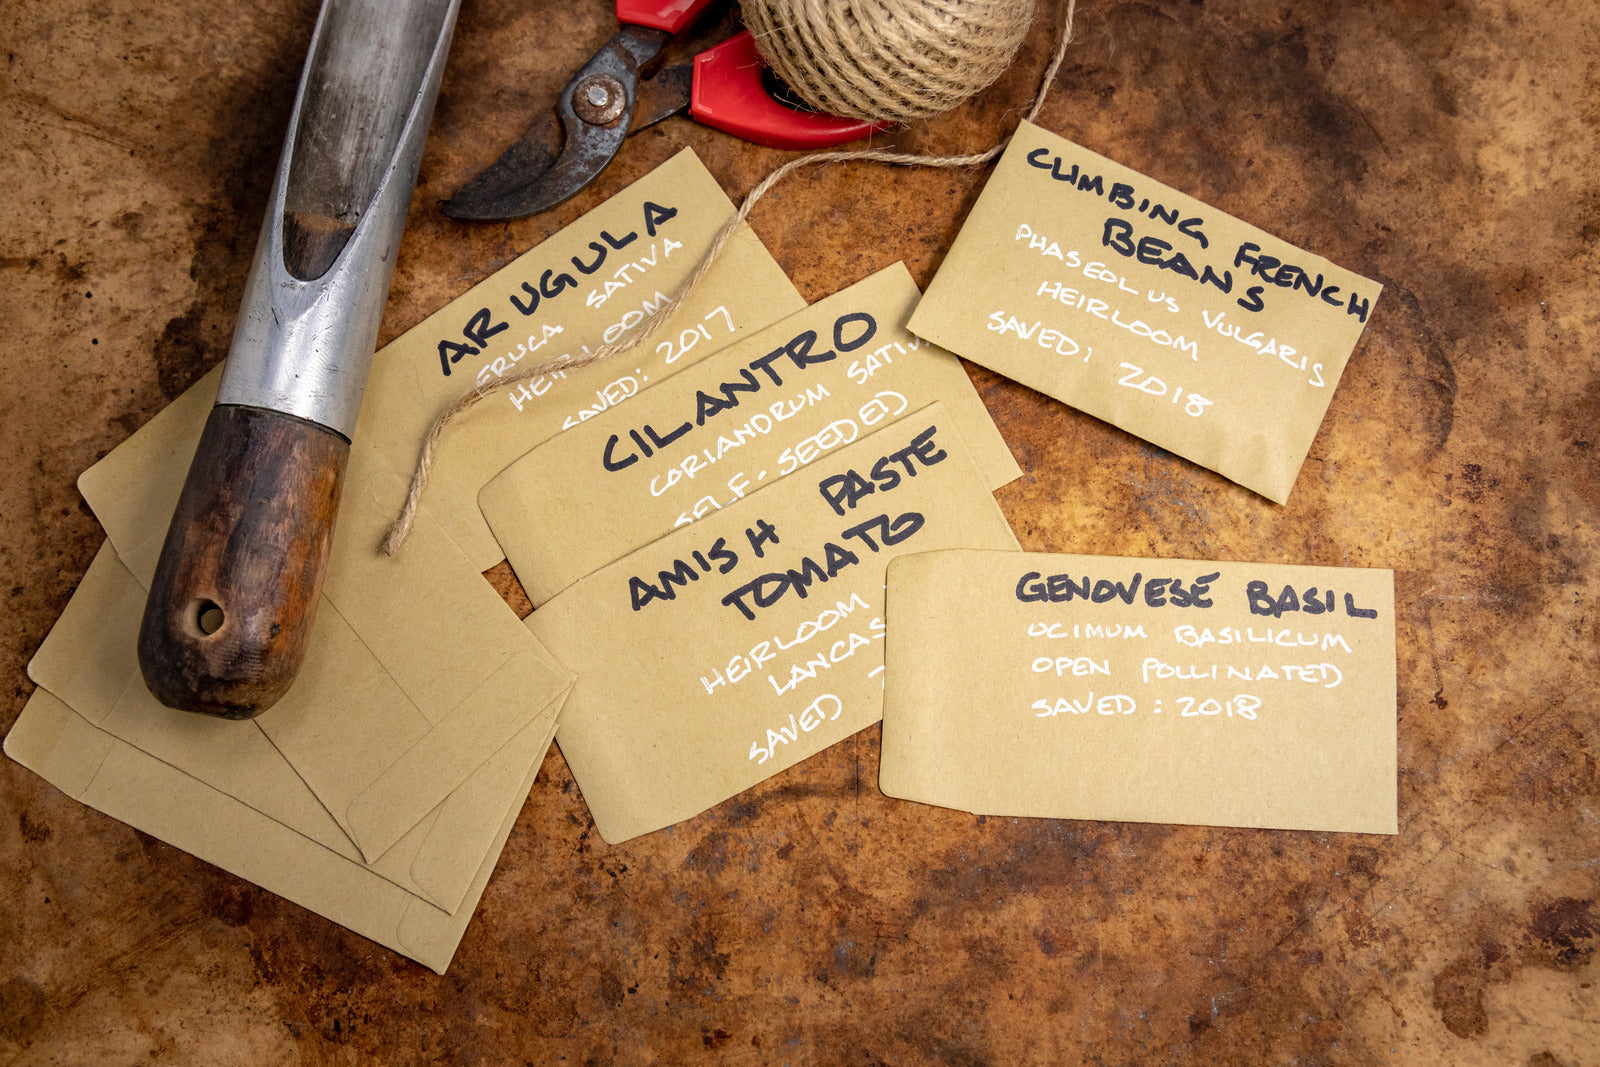 ARUGULA
ERUCA SATIVA
HEIRLOOM
SAVED: 2017
CILANTRO
CORIANDRUM
SELF-SEEDED
AMISH PASTE
TOMATO
HEIRLOOM
SAVED
CLIMBING FRENCH
BEANS
PHASEOLUS VULGARIS
HEIRLOOM
SAVED: 2018
GENOVESE BASIL
OCIMUM BASILICUM
OPEN POLLINATED
SAVED: 2018